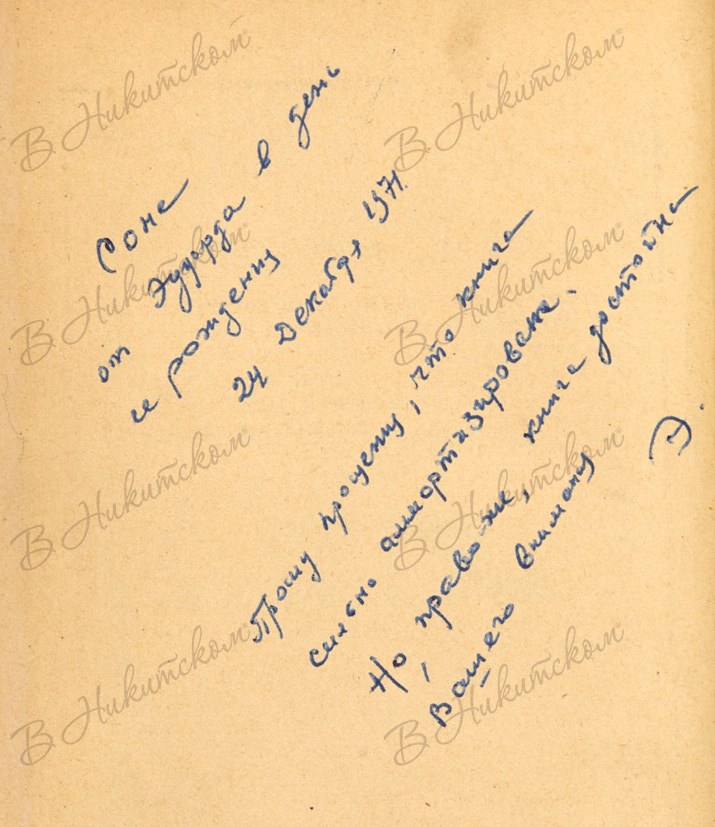 Соне
от Эдуарда в день
ее рождения
24 Декабря 1971.
Прошу прощения, что книга
сильно аммортизирована.
Но, право же, книга достойна
Вашего внимания
Э.
В Никитском
В Никитском
В Никитском
В Никитском
В Никитском
В Никитском
В Никитском
В Никитском